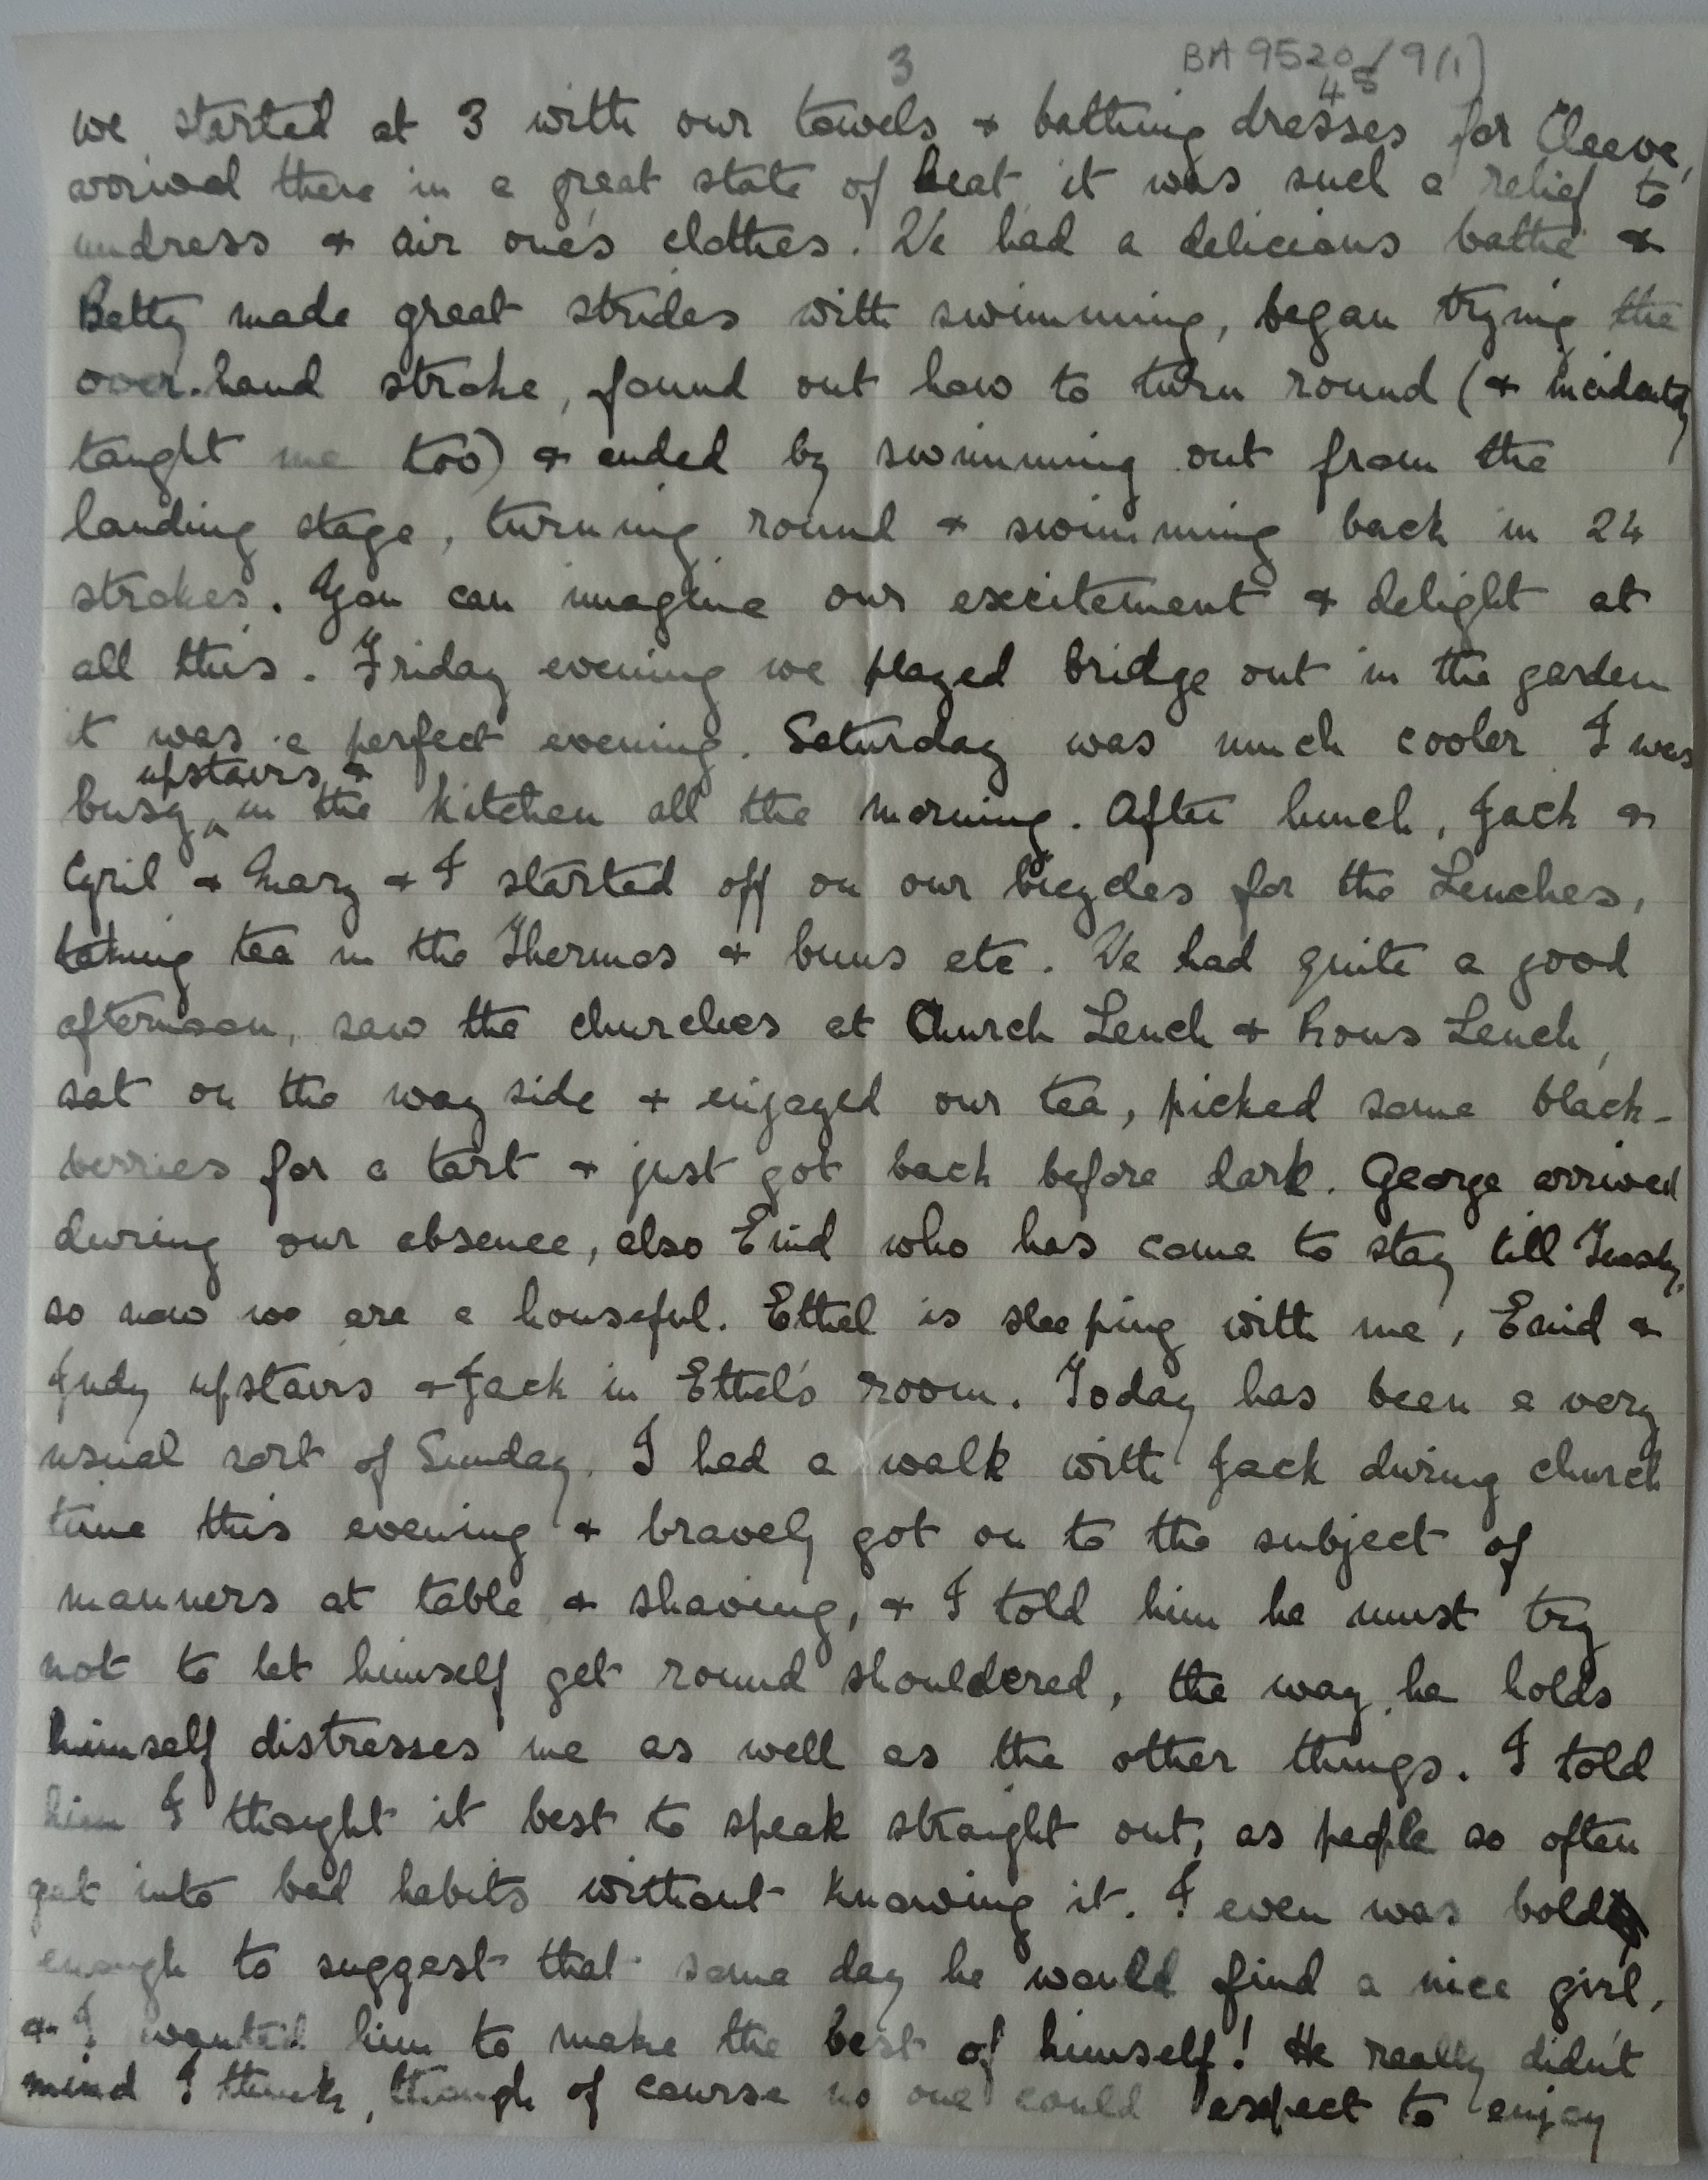 3
BA 9520/9(1)
48
we started at 3 with our towels & bathing dresses for Cleeve,
arrived there in a great state of heat it was such a relief to
undress & air one's clothes. We had a delicious bathe &
Betty made great strides with swimming, began trying the
over-hand stroke, found out how to turn round (& incidently
taught me too) & ended by swimming out from the
landing stage, turning round & swimming back in 24
strokes. You can imagine our excitement & delight at
all this. Friday evening we played bridge out in the garden
it was a perfect evening. Saturday was much cooler I was
upstairs &
busy ^ in the kitchen all the morning. After lunch, Jack &
Cyril & Mary & I started off on our bicycles for the Lenches,
taking tea in the Thermos & buns etc. We had quite a good
afternoon, saw the churches at Church Lench & Rous Lench,
sat on the way side & enjoyed our tea, picked some black-
berries for a tart & just got back before dark. George arrived
during our absence, also Enid who has come to stay till Tuesdy,
so now we are a houseful. Ethel is sleeping with me, Enid &
Judy upstairs & Jack in Ethel's room. Today has been a very
usual sort of Sunday. I had a walk with Jack during church
time this evening & bravely got on to the subject of
manners at table & shaving, & I told him he must try
not to let himself get round shouldered, the way he holds
himself distresses me as well as the other things. I told
him I thought it best to speak straight out, as people so often
get into bad habits without knowing it. I even was bold
enough to suggest that some day he would find a nice girl,
& I wanted him to make the best of himself! He really didn't
mind I think, though of course no one could expect to enjoy